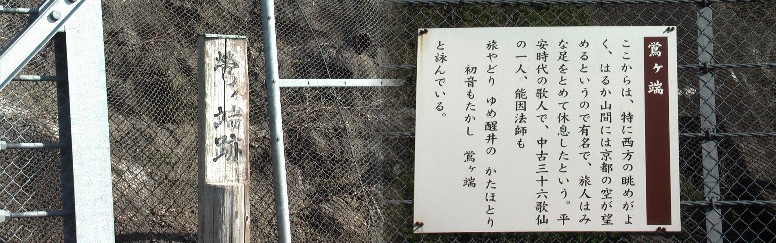 鶯ヶ端跡
鶯ヶ端
ここからは、特に西方の眺めがよ
く、はるか山間には京都の空が望
めるというので有名で、旅人はみ
な足をとめて休息したという。平
安時代の歌人で、中古三十六歌仙
の一人、能因法師も
旅やどり ゆめ醒井の かたほとり
初音もたかし 鶯ヶ端
と詠んでいる。